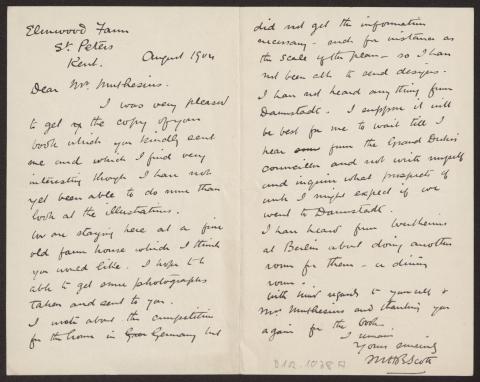 Elmwood Farm
St. Peters
Kent. August 1904
Dear Mr. Muthesius.
I was very pleased
to get the copy of your
book which you kindly sent
me and which I find very
interesting though I have not
yet been able to do more than
look at the illustrations.
We are staying here at a fine
old farm house which I think
you would like. I hope to be
able to get some photographs
taken and sent to you.
I wrote about the competition
for the house in Germany but
did not get the information
necessary - such for instance as
the scale of the plan - so I have
not been able to send designs.
I have not heard anything from
Darmstadt. I suppose it will
be best for me to wait till I
hear from the Grand Duke's
councillor and not write myself
and inquire what prospects of
work I might expect if we
went to Darmstadt.
I have heard from Wertheims
at Berlin about doing another
room for them - a dining
room.
With kind regards to yourself &
Mrs. Muthesius and thanking you
again for the book.
I remain
Yours sincerely
MHBScott